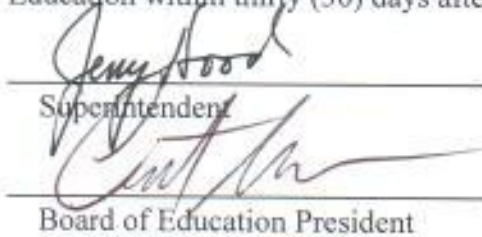 Education within thirty (30) days after
Jerry Hood
Superintendent
Board of Education President